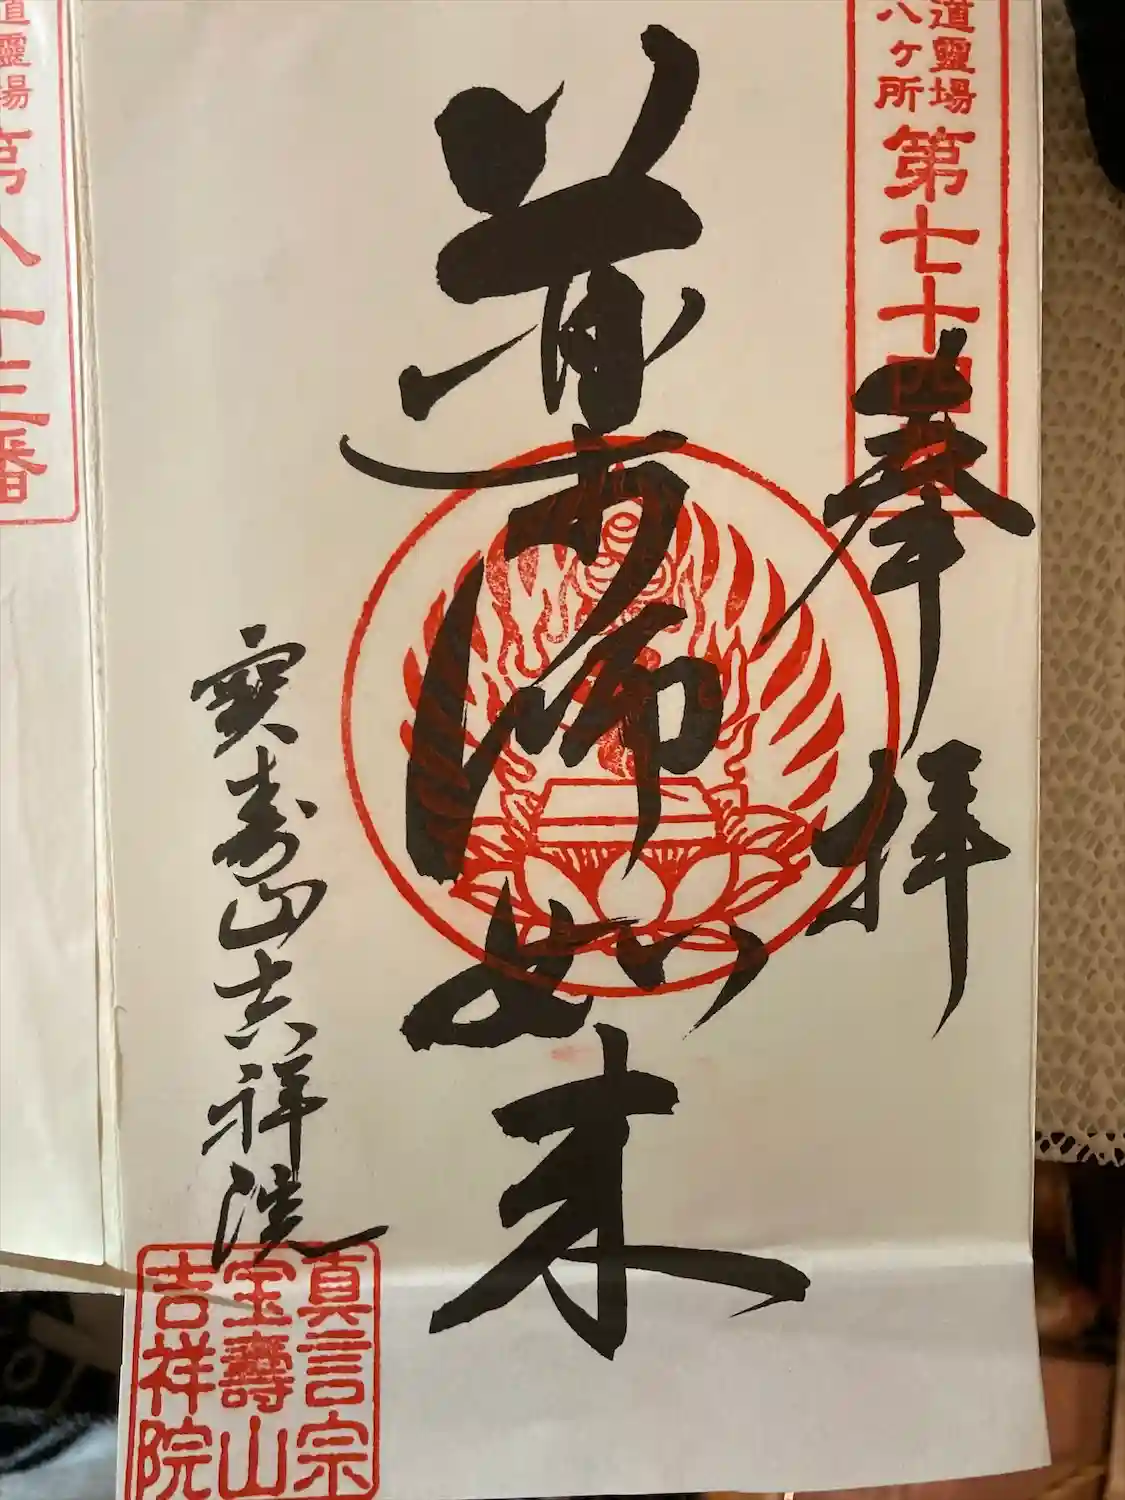 道靈場
八ヶ所
第七十四番
奉拝
薬師如来
寳寿山吉祥院
真言宗
宝壽山
吉祥院
道靈場
第八十三番